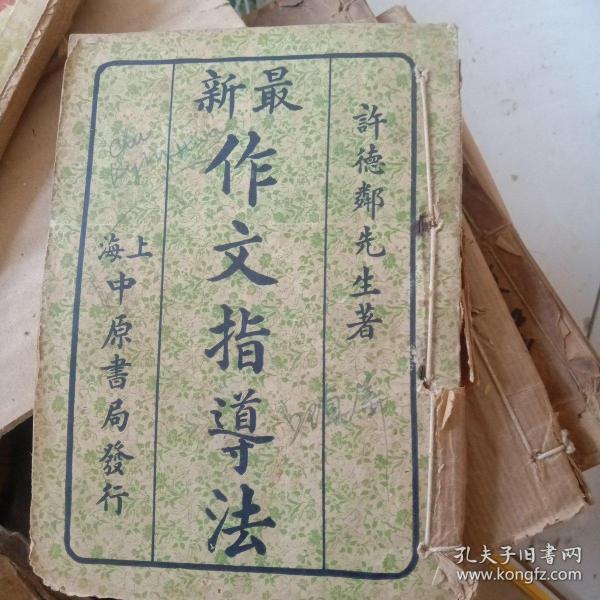 許德鄰先生著
最新
作文指導法
上海
中原書局發行
孔夫子旧书网
www.kongfz.com